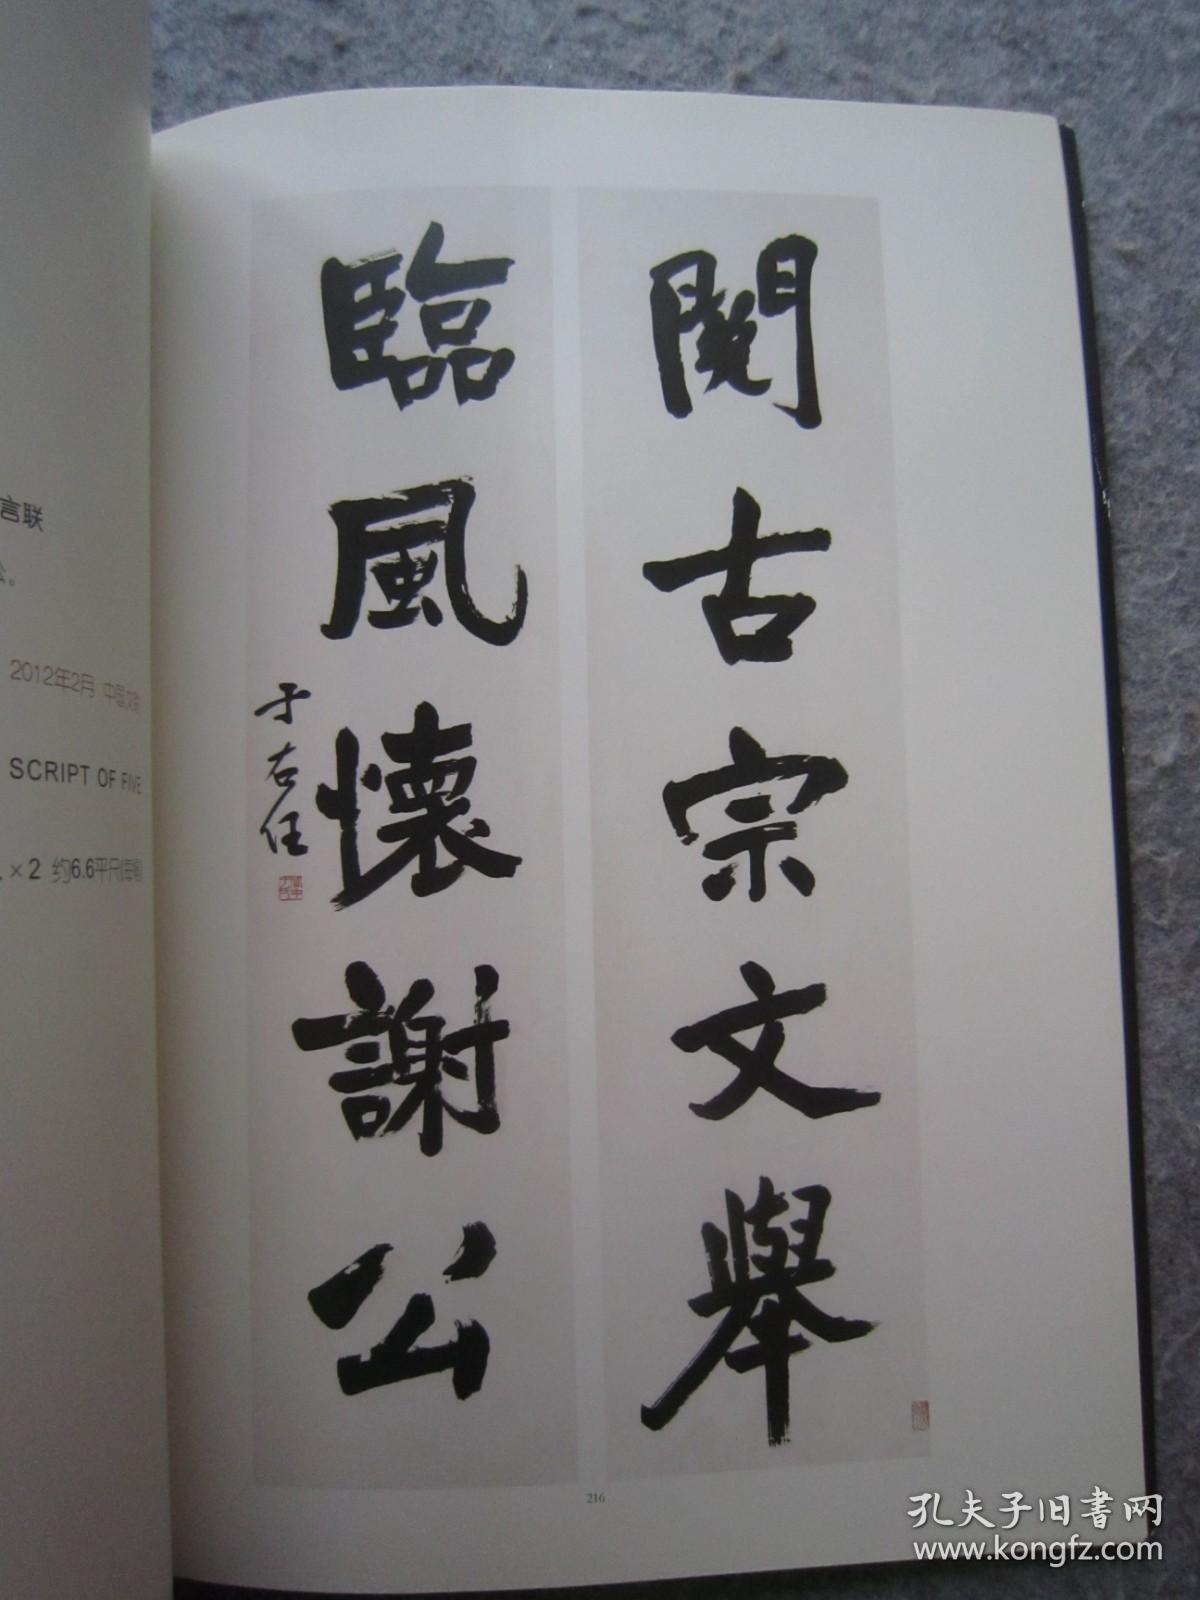 閱古宗文舉
臨風懷謝公
于右任
言联
公。
2012年2月 中国文
SCRIPT OF FIVE
×2 约6.6平尺(每幅)
216
孔夫子旧书网
www.kongfz.com